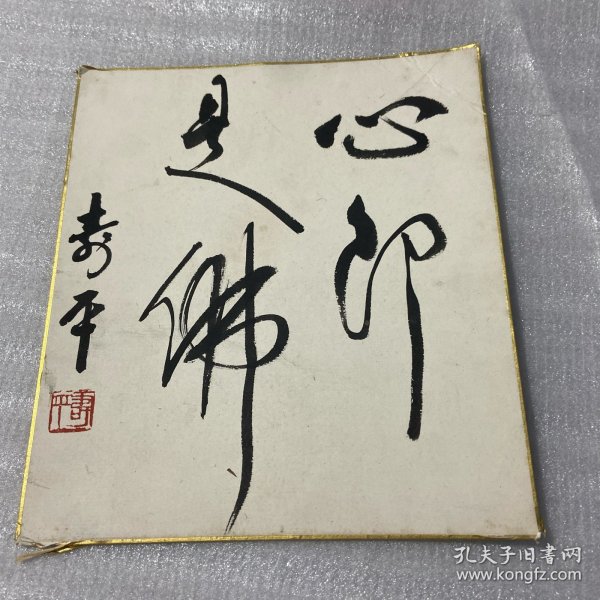 心即
是佛
寿平
寿平
孔夫子旧书网
www.kongfz.com